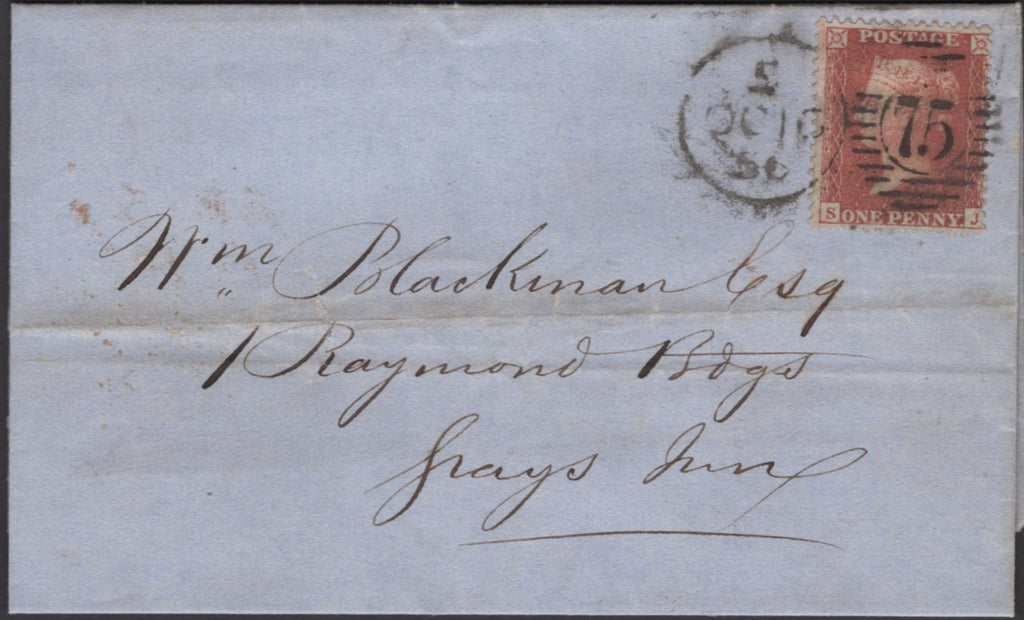 5
OC 16
56
POSTAGE
75
S ONE PENNY J
Wm Blackman Esq
1 Raymond Bdgs
Grays Inn